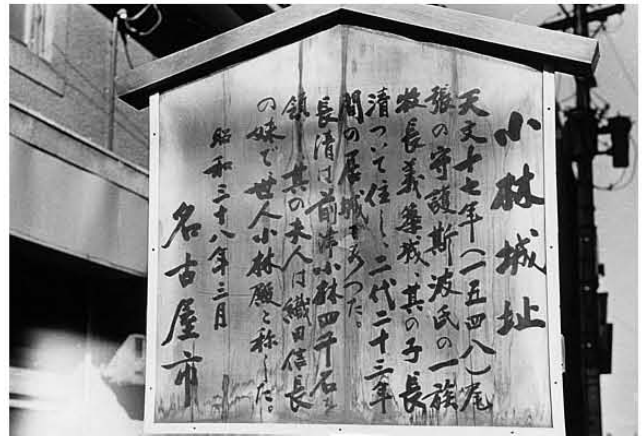 小林城址
天文十七年(一五四八)尾
張の守護斯波氏の一族
牧長義築城、其の子長
清ついで住し、二代二十三年
間の居城であつた。
長清は前津小林四千石を
領し其の夫人は織田信長
の妹で、世人小林殿と称した。
昭和三十八年三月
名古屋市